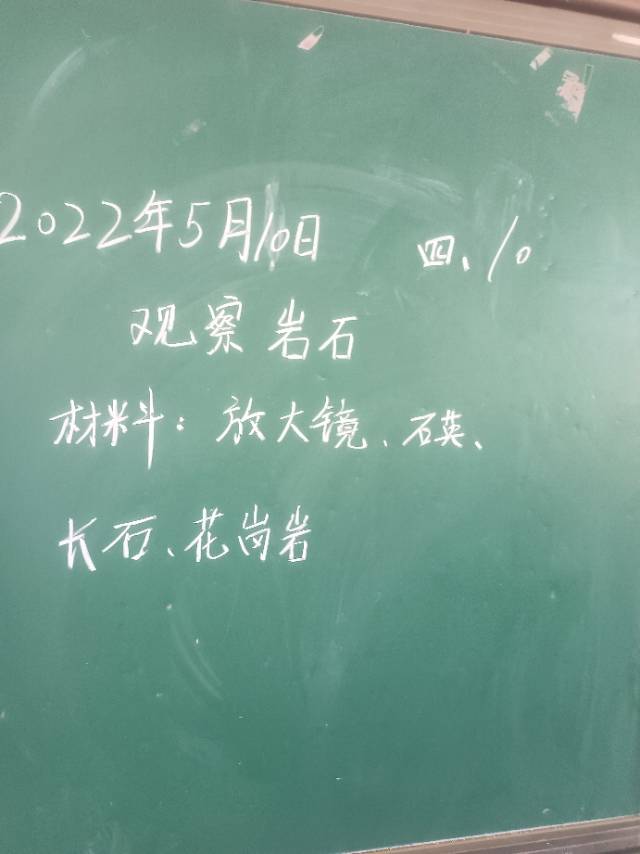 2022年5月10日 四、10
观察岩石
材料：放大镜、石英、
长石、花岗岩